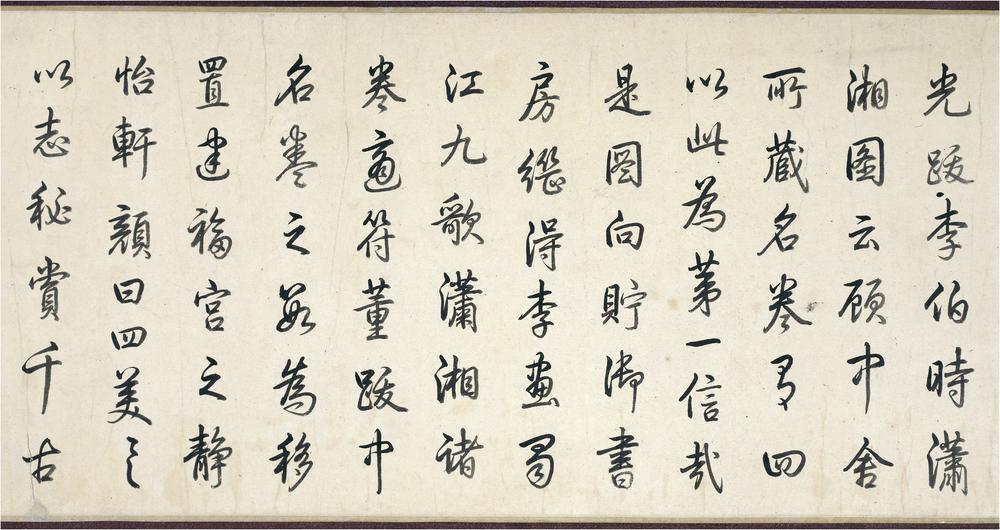 光跋李伯時瀟
湘圖云顧中舍
所蔵名卷有四
以此為第一信哉
是圖向貯御書
房繼得李畫蜀
江九歌瀟湘諸
卷適符董跋中
名卷之數為移
置建福宮之靜
怡軒顏曰四美具
以志秘賞千古